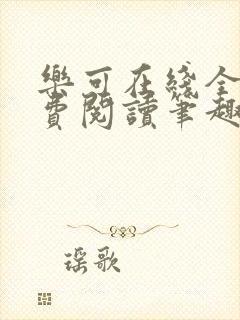 樂可在綫全
費閱讀筆趣
瑶歌